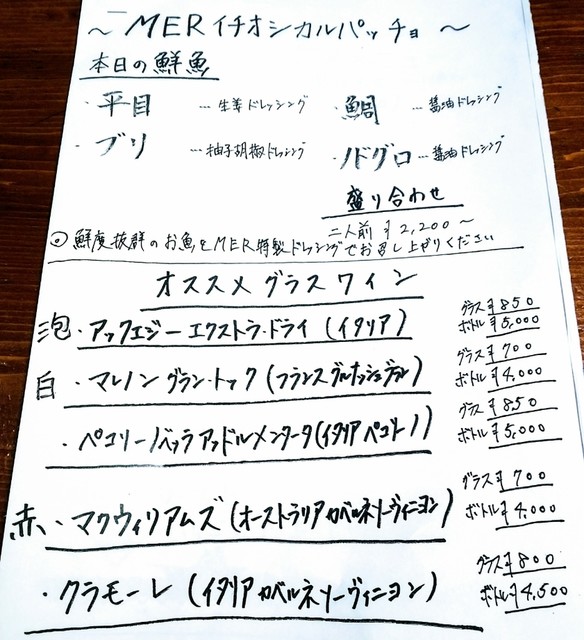 ～MERイチオシカルパッチョ～
本日の鮮魚
・平目 …生姜ドレッシング ・鯛 …醤油ドレッシング
・ブリ …柚子胡椒ドレッシング ・ノドグロ …醤油ドレッシング
盛り合わせ
二人前 ¥2,200～
◎鮮度抜群のお魚をMER特製ドレッシングでお召し上がりください
オススメグラスワイン
泡・アックエジーエクストラ・ドライ(イタリア) グラス¥850
ボトル¥5,000
白・マレノングラン・トック(フランス グルナッシュ) グラス¥700
ボトル¥4,000
・ペコリーノベッラアッドルメンタータ(イタリア ペコリーノ) グラス¥850
ボトル¥5,000
赤・マクウィリアムズ(オーストラリア カベルネソーヴィニヨン) グラス¥700
ボトル¥4,000
・クラモーレ(イタリア カベルネソーヴィニヨン) グラス¥800
ボトル¥4,500